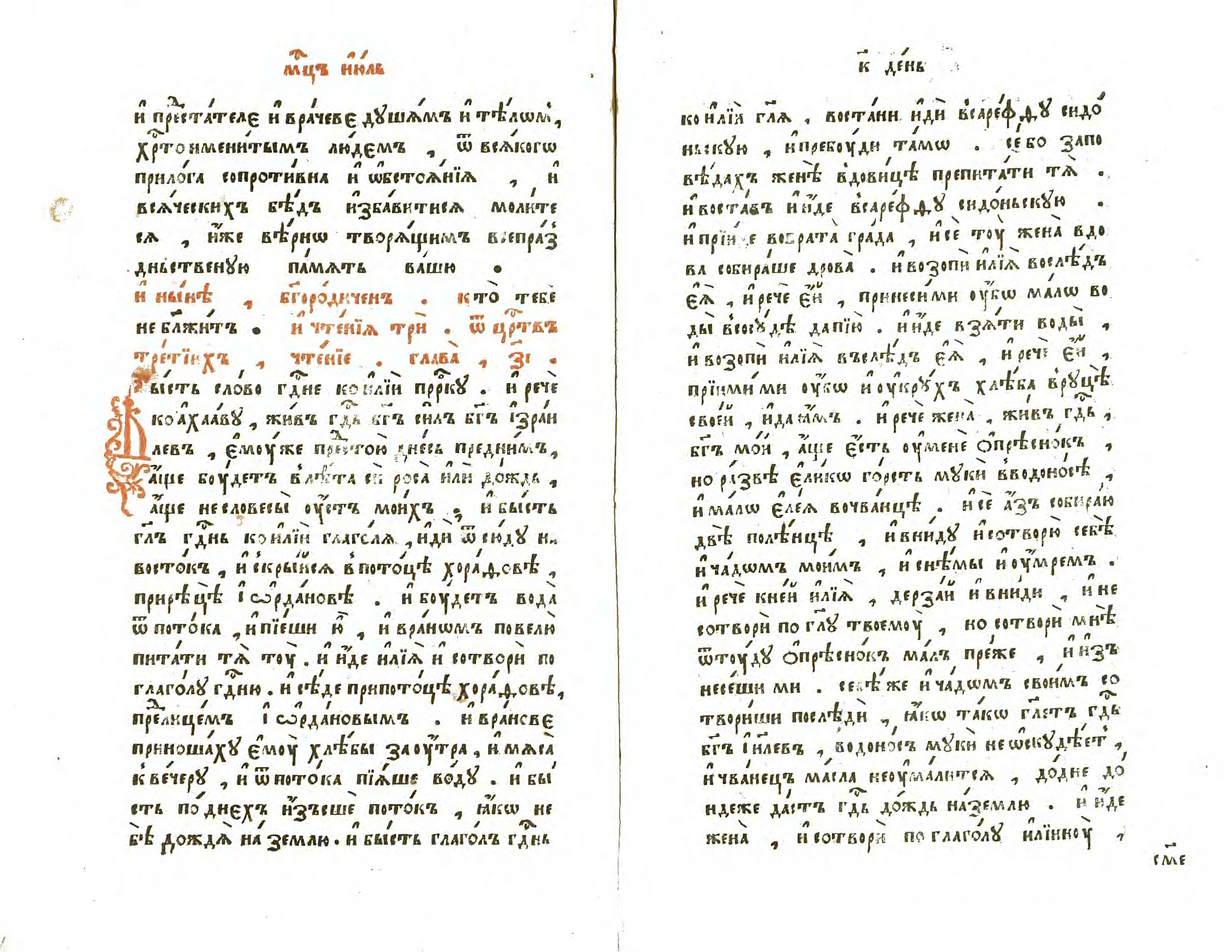 мⷭ҇цъ и҆ю́ль
и҆ предста́телє и҆ врачевє дꙋша́мъ и҆ тѣ́лѡмъ,
хрⷭ҇тоимени́тымъ лю́демъ , ѿ всѧ́когѡ
прило́га сопроти́вна и҆ ѡбстоѧ́нїѧ , и
всѧ́ческихъ бѣ́дъ и҆зба́витисѧ моли́те
сѧ , и҆́же вѣ́рнѡ творѧ́щимъ всепра́з
дньственꙋю па́мѧть ва́шю .
и҆ ны́нѣ , бг҃оро́диченъ . кто̀ тебѐ
не бл҃жи́тъ . и҆ чте́нїѧ трѝ . ѿ црⷭ҇твъ
тре́тїихъ , чте́нїе . глава̀ , з҃і .
Бы́сть сло́во гдⷭ҇не ко и҆лїѝ прⷪ҇ркꙋ . и҆ речѐ
ко а҆хаа́вꙋ , жи́въ гдⷭ҇ь бг҃ъ си́лъ бг҃ъ і҆зра́и
левъ , є҆мꙋ́же предстою̀ дне́сь преднимъ,
а҆́ще бꙋ́детъ в лѣ́та сїѧ̀ роса̀ и҆лѝ до́ждь ,
а҆́ще не словесы̀ ᲂу҆́стъ мои́хъ . и҆ бы́сть
гл҃ъ гдⷭ҇нь ко и҆лїѝ глаго́лѧ , и҆дѝ ѿсю́дꙋ на
восто́къ , и҆ скры́йсѧ в пото́цѣ хора́ѳовѣ ,
при рѣцѣ̀ і҆ѡрда́новѣ . и҆ бꙋ́детъ вода̀
ѿ пото́ка , и҆ пїе́ши ю҆̀ , и҆ вра́нѡмъ повелю̀
пита́ти тѧ̀ тꙋ̀ . и҆ и҆́де и҆лїѧ̀ и҆ сотворѝ по
глаго́лꙋ гдⷭ҇ню . и҆ сѣ́де при пото́цѣ хора́ѳовѣ,
предлице́мъ і҆ѡрда́новымъ . и҆ вра́новє
приноша́хꙋ є҆мꙋ̀ хлѣ́бы заꙋ́тра , и҆ мѧса̀
к ве́черꙋ , и҆ ѿ пото́ка пїѧ́ше во́дꙋ . и҆ бы́
сть по́ днехъ и҆́зъсше пото́къ , ꙗ҆́кѡ не
бѣ̀ дождѧ̀ на́ землю . и҆ бы́сть глаго́лъ гдⷭ҇нь
к҃ де́нь
ко и҆лїѝ гл҃ѧ , воста́ни и҆дѝ в саре́фѳꙋ сидо́
ньскꙋю , и҆ пребꙋ́ди та́мѡ . се́ бо запо
вѣ́дахъ женѣ̀ вдови́цѣ препита́ти тѧ̀ .
и҆ воста́въ и҆ и҆́де в саре́фѳꙋ сидо́ньскꙋю .
и҆ прїи́де во врата̀ гра́да , и҆ сѐ тꙋ̀ жена̀ вдо
ва̀ собира́ше дрова̀ . и҆ возопѝ и҆лїѧ̀ вослѣ́дъ
є҆ѧ̀ , и҆ речѐ є҆́й , принеси́ ми ᲂу҆̀бѡ ма́лѡ во
ды̀ в сосꙋ́дѣ да пїю̀ . и҆ и҆́де взѧ́ти воды̀ ,
и҆ возопѝ и҆лїѧ̀ въслѣ́дъ є҆ѧ̀ , и҆ речѐ є҆́й ,
прїими́ ми ᲂу҆̀бѡ и҆ ᲂу҆крꙋ́хъ хлѣ́ба в рꙋцѣ̀
свое́й , и҆ да ꙗ҆́мъ . и҆ речѐ жена̀ , жи́въ гдⷭ҇ь ,
бг҃ъ мо́й , а҆́ще є҆́сть ᲂу҆ менѐ ѻ҆прѣсно́къ ,
но ра́звѣ є҆ли́кѡ го́рсть мꙋкѝ в водоно́сѣ ,
и҆ ма́лѡ є҆ле́ѧ во чва́нцѣ . и҆ сѐ а҆́зъ собира́ю
двѣ̀ полѣ́нцѣ , и҆ вни́дꙋ и҆ сотворю̀ себѣ̀
и҆ ча́дѡмъ мои́мъ , и҆ снѣ́мы и҆ ᲂу҆́мремъ .
и҆ речѐ к не́й и҆лїѧ̀ , дерза́й и҆ вни́ди , и҆ не
сотворѝ по гл҃ꙋ твоемꙋ̀ , но сотворѝ мнѣ̀
ѿтꙋ́дꙋ ѻ҆прѣсно́къ ма́лъ пре́же , и҆ и҆зъ
несе́ши ми . себѣ́ же и҆ ча́дѡмъ свои́мъ со
твори́ши послѣдѝ , ꙗ҆́кѡ та́кѡ гл҃етъ гдⷭ҇ь
бг҃ъ і҆и҃левъ , водоно́съ мꙋкѝ не ѡскꙋдѣ́етъ ,
и҆ чва́нецъ ма́сла не ᲂу҆ма́литсѧ , до́дне до́
ндеже да́стъ гдⷭ҇ь до́ждь на́ землю . и҆ и҆́де
жена̀ , и҆ сотворѝ по глаго́лꙋ и҆лїинꙋ̀ ,
смⷤе